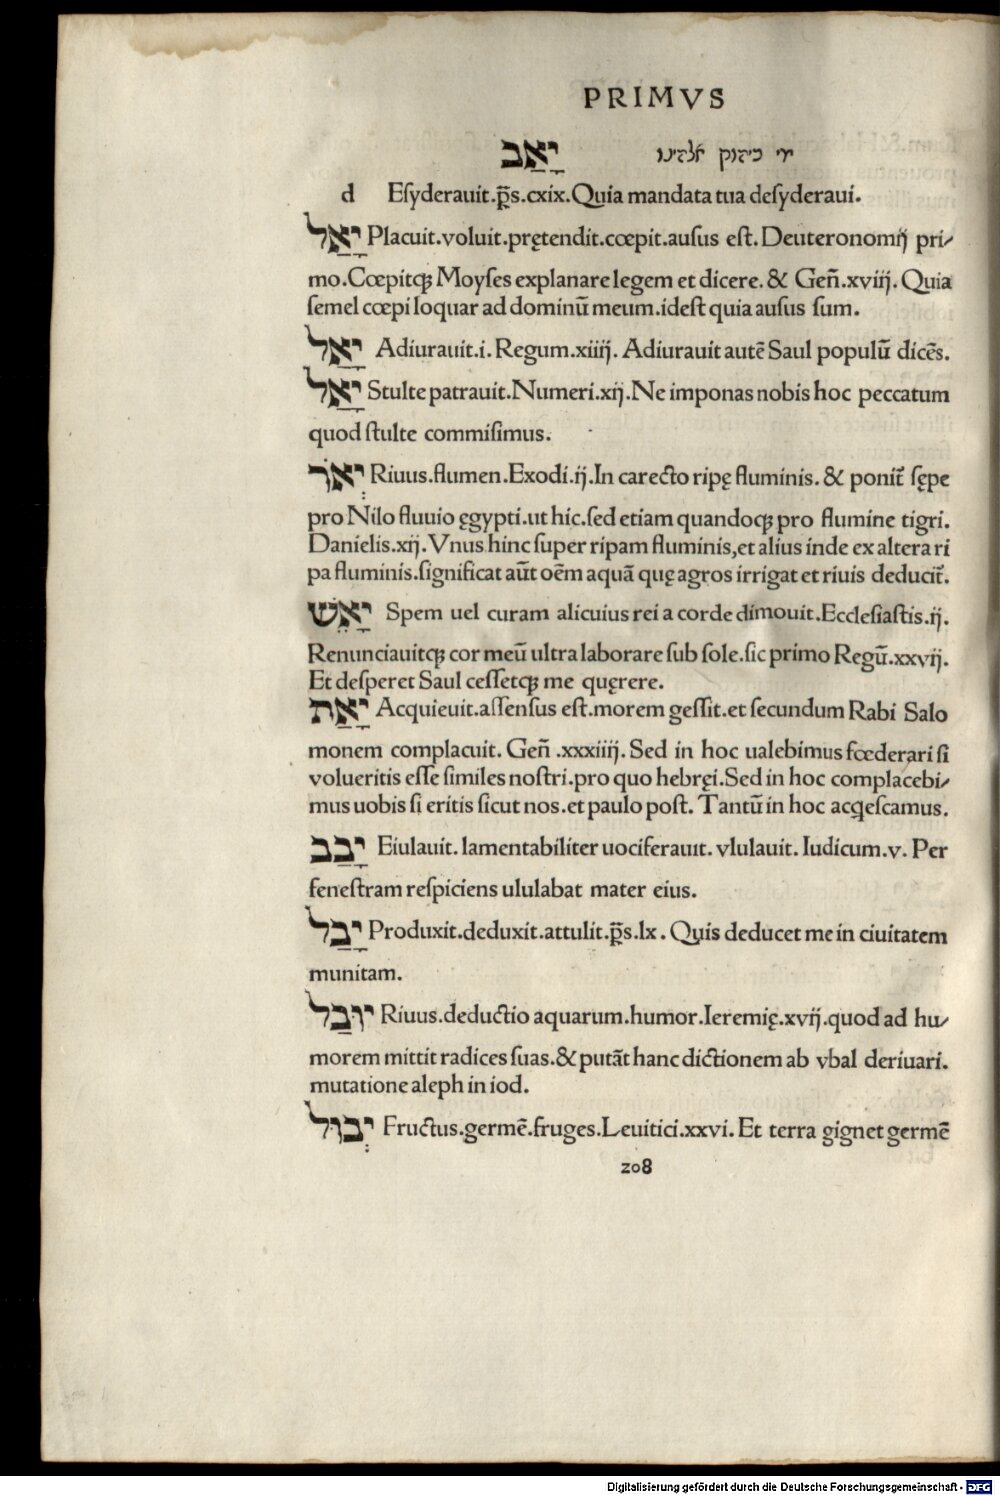 PRIMVS
יָאַב
d Eſyderauit.p̃s.cxix.Quia mandata tua deſyderaui.
יָאַל Placuit.voluit.prętendit.cœpit.auſus eſt.Deuteronomij pri⸗
mo.Cœpitqꝫ Moyſes explanare legem et dicere.& Geñ.xviij. Quia
ſemel cœpi loquar ad dominū meum.ideſt quia auſus ſum.
יָאַל Adiurauit.i. Regum.xiiij. Adiurauit autē Saul populū dicēs.
יָאַל Stulte patrauit.Numeri.xij.Ne imponas nobis hoc peccatum
quod ſtulte commiſimus.
יְאֹר Riuus.flumen.Exodi.ij.In carecto ripę fluminis.& ponit̃ ſępe
pro Nilo fluuio ęgypti.ut hic.ſed etiam quandoqꝫ pro flumine tigri.
Danielis.xij.Vnus hinc ſuper ripam fluminis,et alius inde ex altera ri
pa fluminis.ſignificat aūt oēm aquā quę agros irrigat et riuis deducit̃.
יָאֵשׁ Spem uel curam alicuius rei a corde dimouit.Eccleſiaſtis.ij.
Renunciauitqꝫ cor meū ultra laborare ſub ſole.ſic primo Regū.xxvij.
Et deſperet Saul ceſſetqꝫ me quęrere.
יָאַת Acquieuit.aſſenſus eſt.morem geſſit.et ſecundum Rabi Salo
monem complacuit. Geñ .xxxiiij. Sed in hoc ualebimus fœderari ſi
volueritis eſſe ſimiles noſtri.pro quo hebręi.Sed in hoc complacebi⸗
mus uobis ſi eritis ſicut nos.et paulo poſt. Tantū in hoc acq̨eſcamus.
יָבַב Eiulauit. lamentabiliter uociferauit. vlulauit. Iudicum.v. Per
feneſtram reſpiciens ululabat mater eius.
יָבַל Produxit.deduxit.attulit.p̃s.lx. Quis deducet me in ciuitatem
munitam.
יוּבַל Riuus.deductio aquarum.humor.Ieremię.xvij.quod ad hu⸗
morem mittit radices ſuas.& putāt hanc dictionem ab vbal deriuari.
mutatione aleph in iod.
יְבוּל Fructus.germē.fruges.Leuitici.xxvi. Et terra gignet germē
208
Digitalisierung gefördert durch die Deutsche Forschungsgemeinschaft - DFG